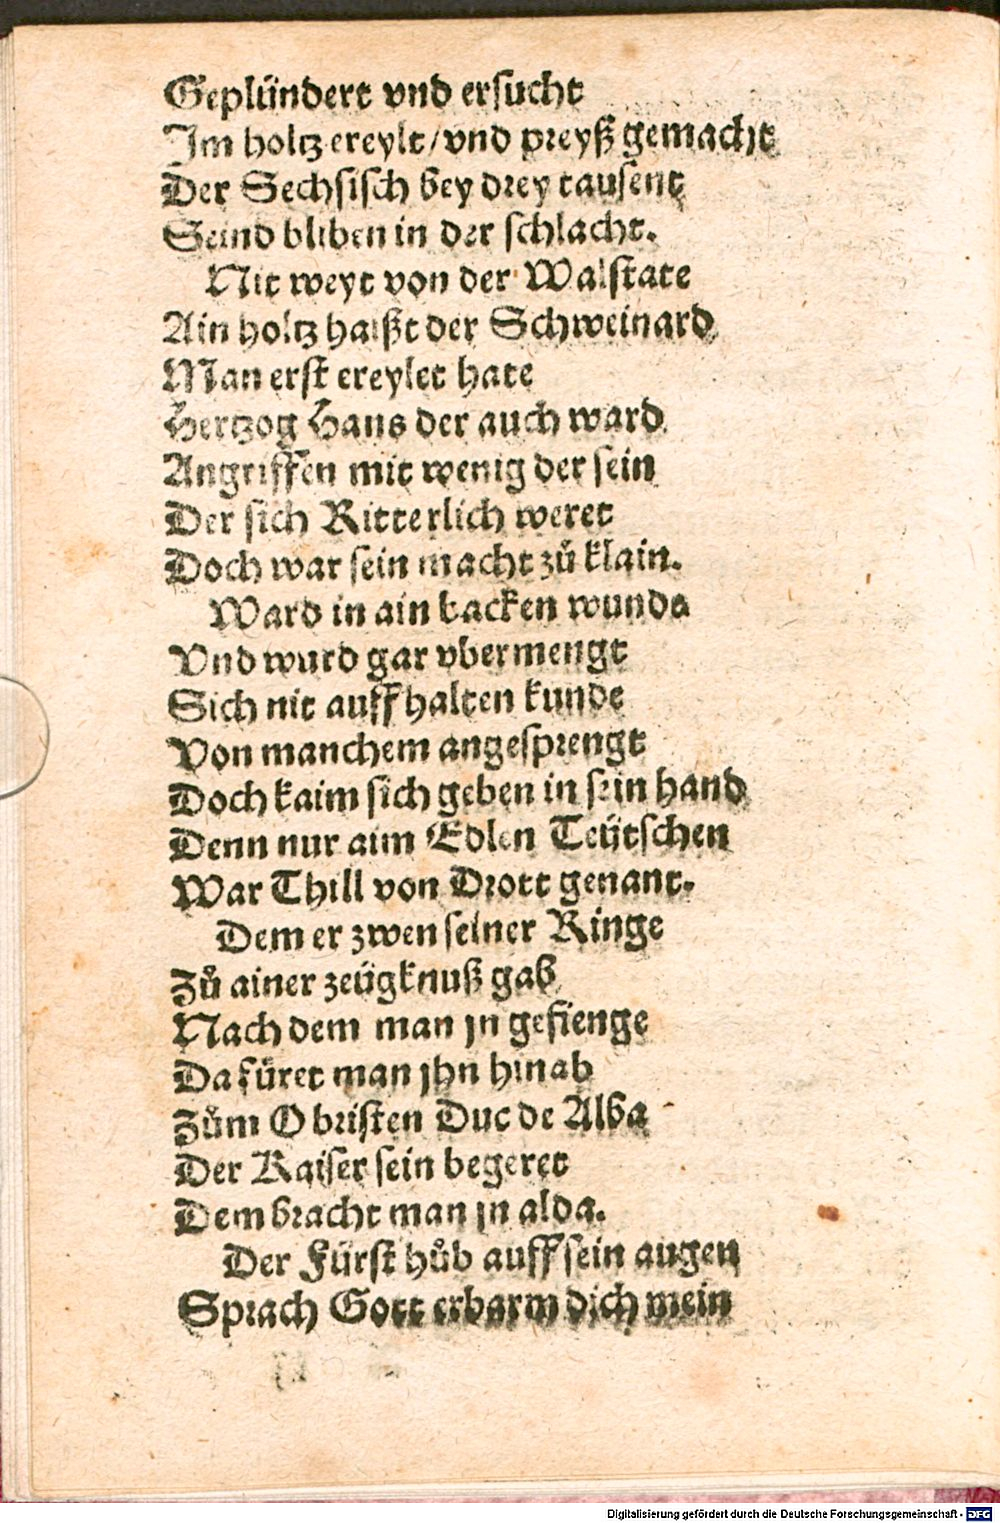 Geplündert vnd ersucht
Im holtz ereylt / vnd preyß gemacht
Der Sechsisch bey drey tausent
Seind bliben in der schlacht.
Nit weyt von der Walstate
Ain holtz haißt der Schweinard
Man erst ereylet hate
Hertzog Hans der auch ward
Angriffen mit wenig der sein
Der sich Ritterlich weret
Doch war sein macht zů klain.
Ward in ain backen wunde
Vnd wurd gar vbermengt
Sich nit auff halten kunde
Von manchem angesprengt
Doch kaim sich geben in sein hand
Denn nur aim Edlen Teütschen
War Thill von Drott genant.
Dem er zwen seiner Ringe
Zů ainer zeügknuß gab
Nach dem man jn gefienge
Da füret man jhn hinab
Zům Obristen Duc de Alba
Der Kaiser sein begeret
Dem bracht man jn alda.
Der Fürst hůb auff sein augen
Sprach Gott erbarm dich mein
Digitalisierung gefördert durch die Deutsche Forschungsgemeinschaft - DFG